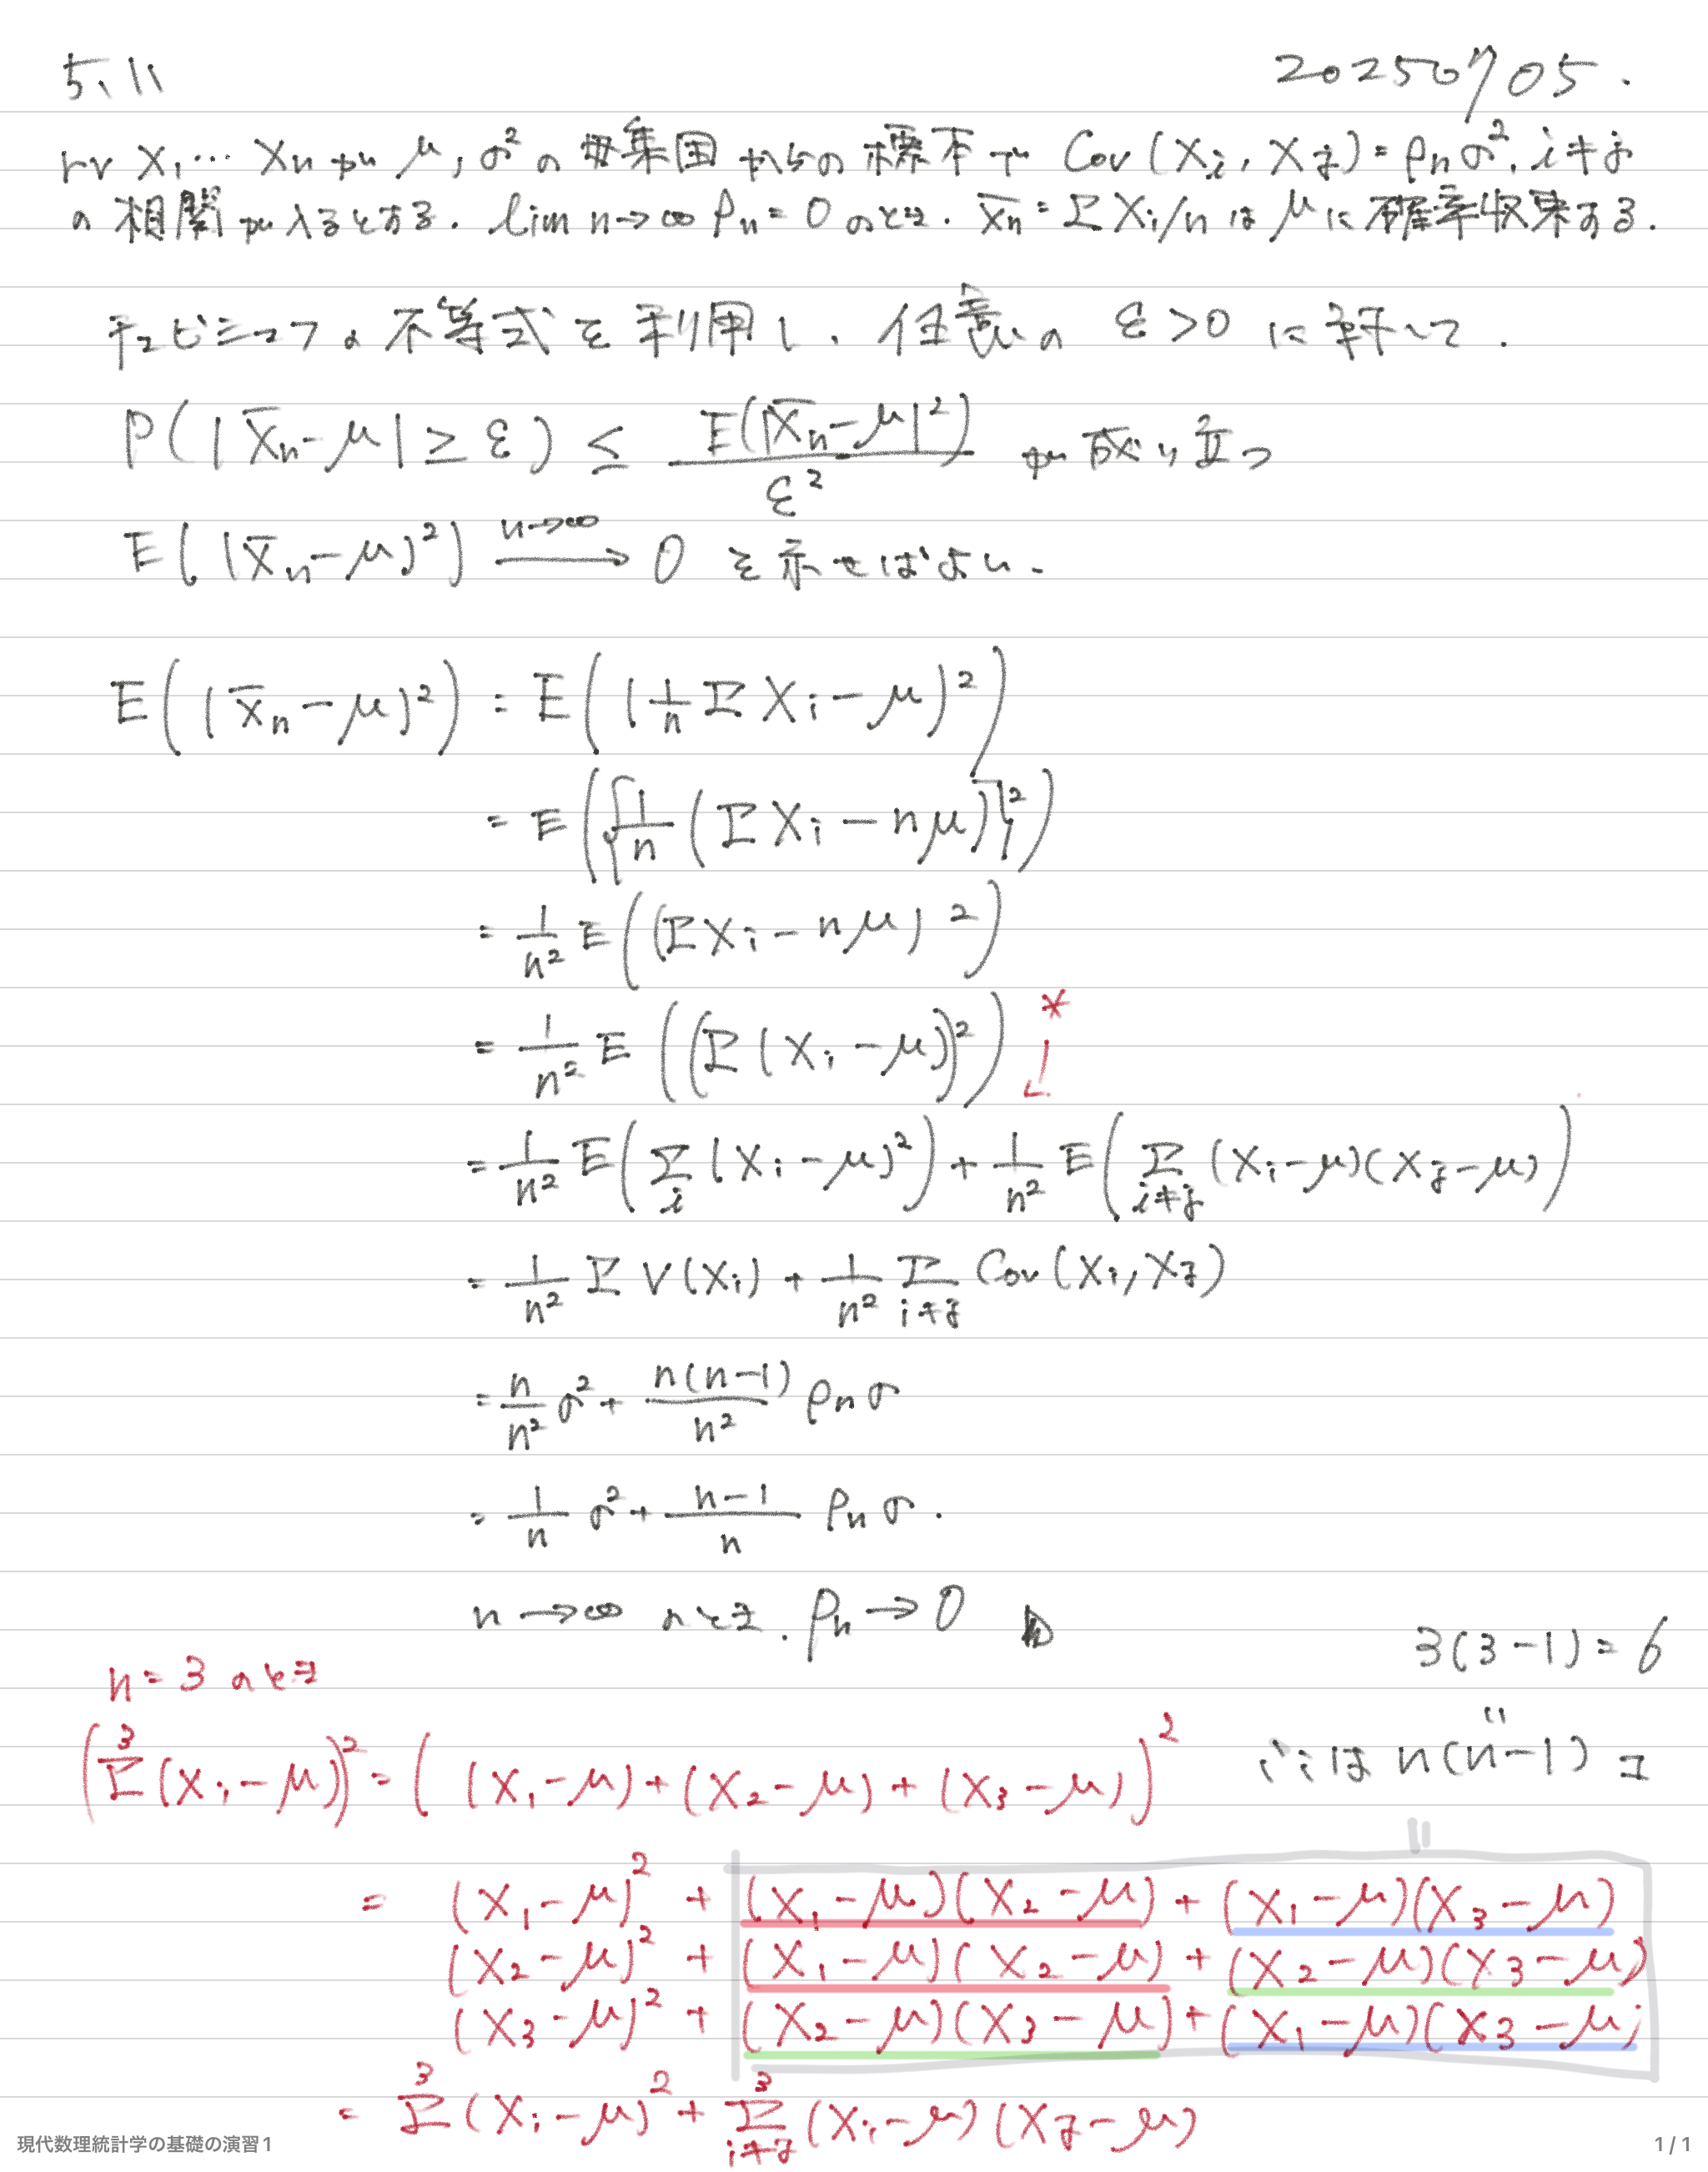 5.11
20250705.
rv X₁… Xn が μ, σ² の母集団からの標本で Cov(Xi, Xj) = ρnσ², i≠j
の相関が入るとする. lim n→∞ ρn = 0 のとき. X̄n = ΣXi/n は μ に確率収束する.
チェビシェフの不等式を利用し、任意の ε>0 に対して.
P(|X̄n-μ| ≥ ε) ≤ E(|X̄n-μ|²)/ε² が成り立つ
E((X̄n-μ)²) n→∞ → 0 を示せばよい.
E((X̄n-μ)²) = E((1/n ΣXi-μ)²)
= E({1/n (ΣXi-nμ)}²)
= 1/n² E((ΣXi-nμ)²)
= 1/n² E((Σ(Xi-μ))²) *
= 1/n² E(Σi(Xi-μ)²) + 1/n² E(Σi≠j(Xi-μ)(Xj-μ))
= 1/n² ΣV(Xi) + 1/n² Σi≠j Cov(Xi, Xj)
= n/n² σ² + n(n-1)/n² ρnσ
= 1/n σ² + n-1/n ρnσ.
n→∞ のとき. ρn→0
3(3-1) = 6
n=3 のとき
(Σ³(Xi-μ))² = ( (X₁-μ)+(X₂-μ)+(X₃-μ))²
は n(n-1) コ
= (X₁-μ)² + (X₁-μ)(X₂-μ) + (X₁-μ)(X₃-μ)
(X₂-μ)² + (X₁-μ)(X₂-μ) + (X₂-μ)(X₃-μ)
(X₃-μ)² + (X₂-μ)(X₃-μ) + (X₁-μ)(X₃-μ)
= Σ³(Xi-μ)² + Σ³i≠j(Xi-μ)(Xj-μ)
現代数理統計学の基礎の演習1
1 / 1